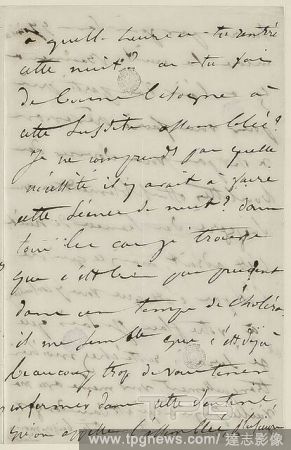 à quelle heure es-tu rentré
cette nuit? as-tu fait
de bonne besogne à
cette susdite assemblée?
Je ne comprends pas quelle
nécessité il y avait à faire
cette séance de nuit? dans
tous les cas je trouve
que c'était peu prudent
dans un temps de choléra
il me semble que c'est déjà
beaucoup trop de vous tenir
renfermés dans cette
qu'on appelle l'assemblée
TPG
www.tpgnews.com / 達志影像